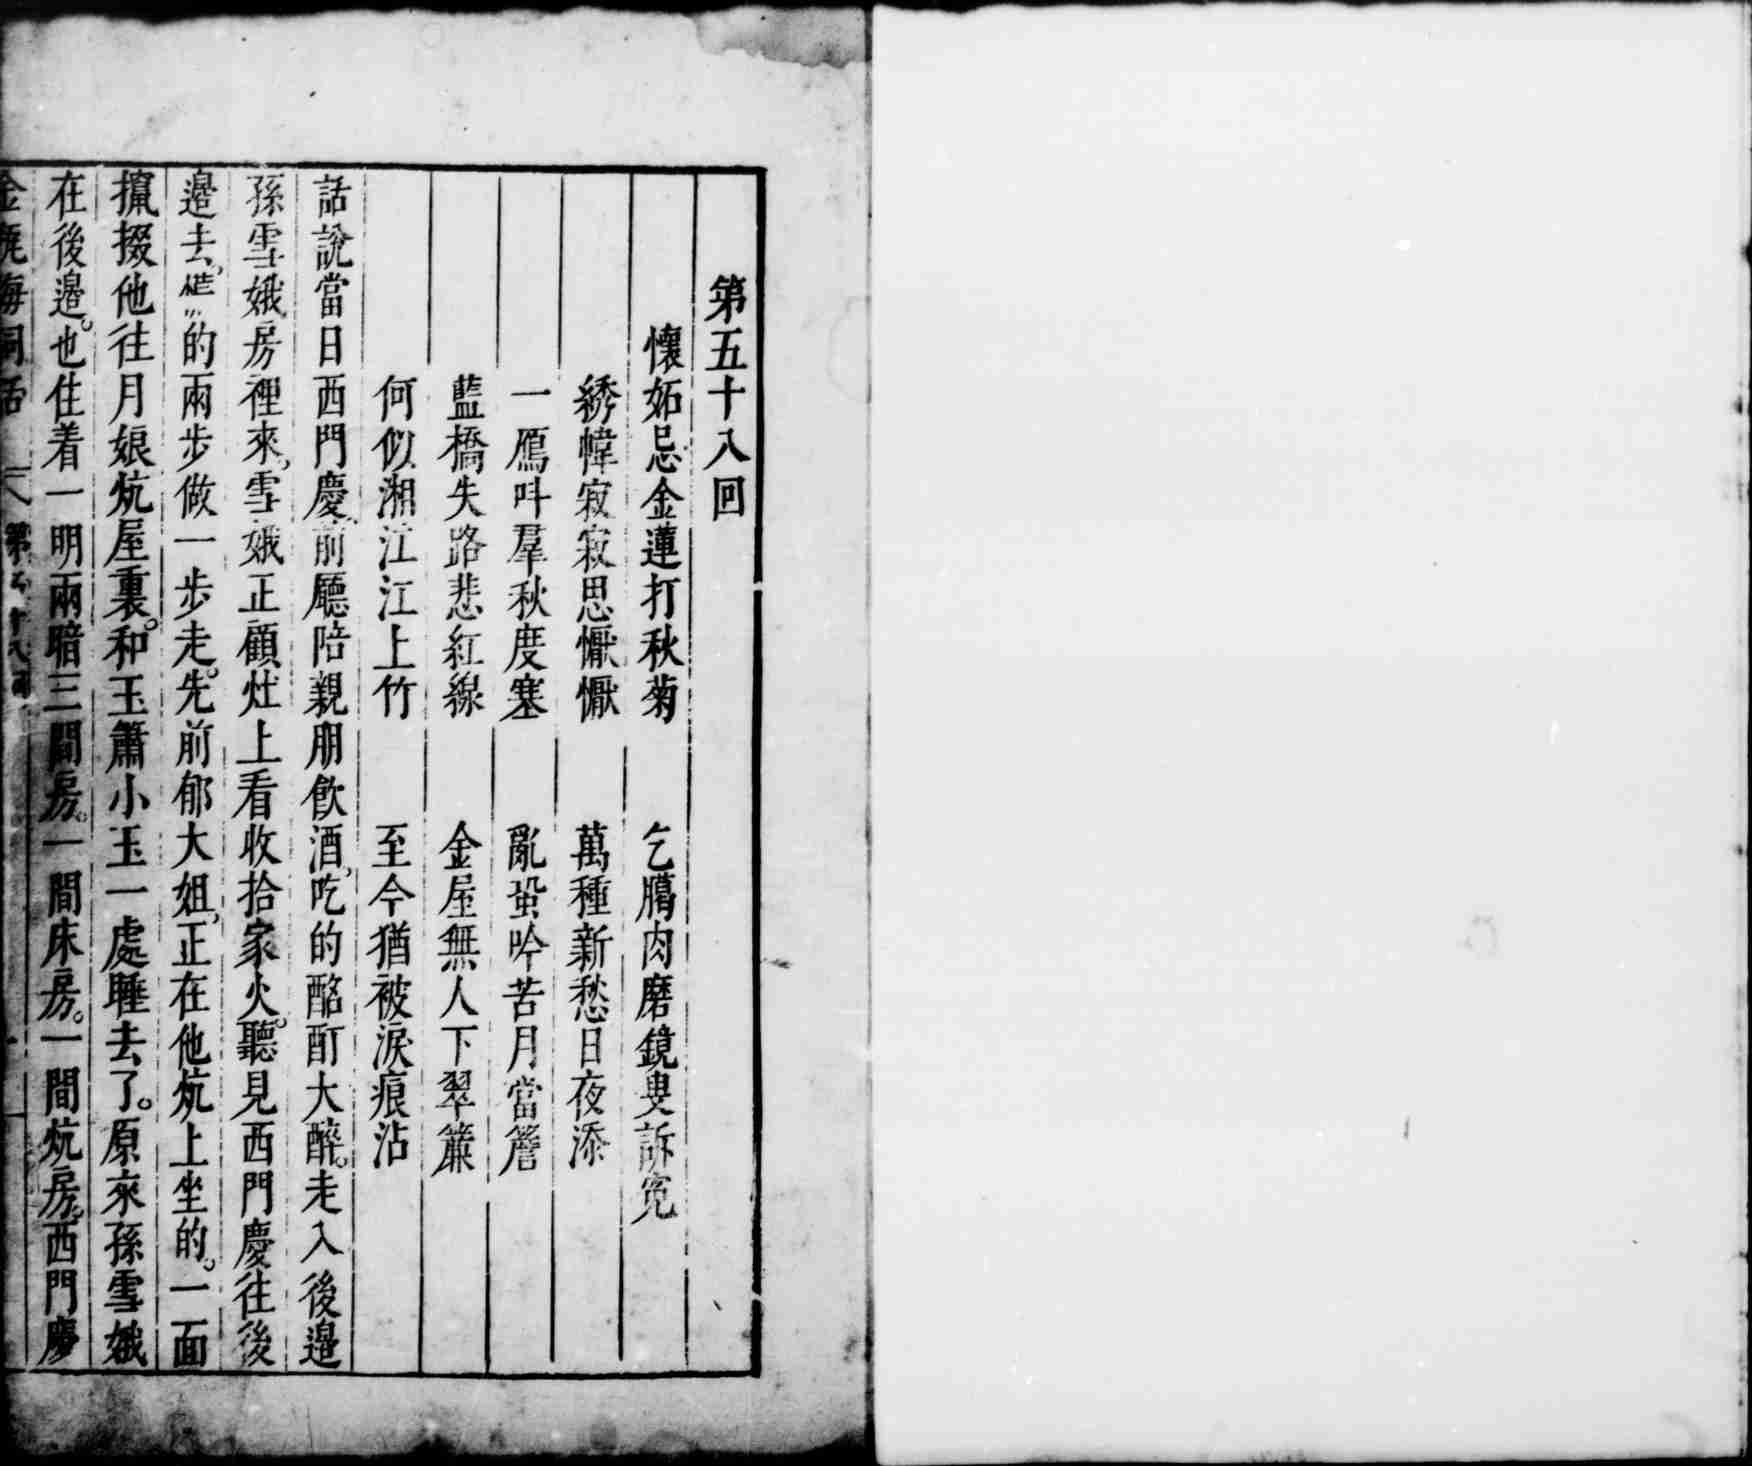 第五十八回
懷妬忌金蓮打秋菊　乞臈肉磨鏡叟訴冤
綉幃寂寂思懨懨　萬種新愁日夜添
一鴈呌羣秋度塞　亂蛩吟苦月當簷
藍橋失路悲紅線　金屋無人下翠簾
何似湘江江上竹　至今猶被淚痕沾
話說當日西門慶前廳陪親朋飲酒，吃的酩酊大醉。走入後邊
孫雪娥房裡來，雪娥正顧灶上看收拾家火。聽見西門慶往後
邊去，慌〻的兩步做一步走。先前郁大姐，正在他炕上坐的。一面
攛掇他往月娘炕屋裏。和玉簫小玉一處睡去了。原來孫雪娥
在後邊。也住着一明兩暗三間房。一間床房。一間炕房。西門慶
金瓶梅詞話　第五十八回　一